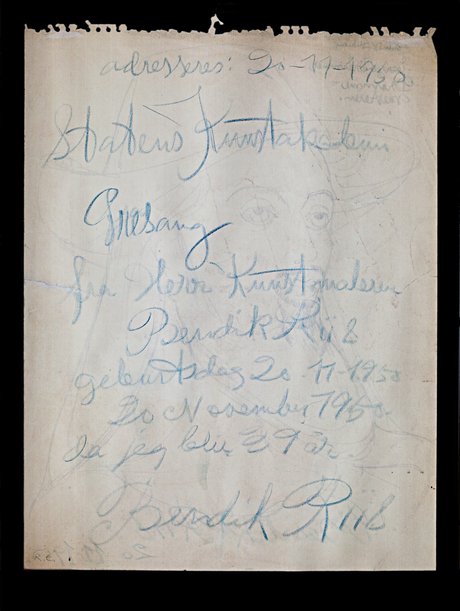 adresseres: 20-11-1950
Statens Kunstakademi
fra Herr Kunstmaleren
Bendik Riis
geburtsdag 20-11-1950
20 November 1950
Da jeg blir 39 år.
Bendik Riis